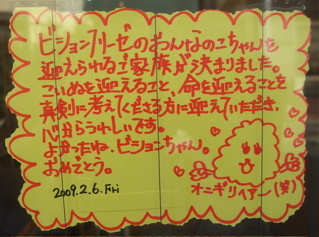 ビションフリーゼのおんなのこちゃんを
迎えられるご家族が決まりました。
こいぬを迎えること、命を迎えることを
真剣に考えてくださる方に迎えていただき、
心からうれしいです。
よかったね、ビションちゃん。
おめでとう。
2009.2.6.Fri
オニギリヘアー(笑)